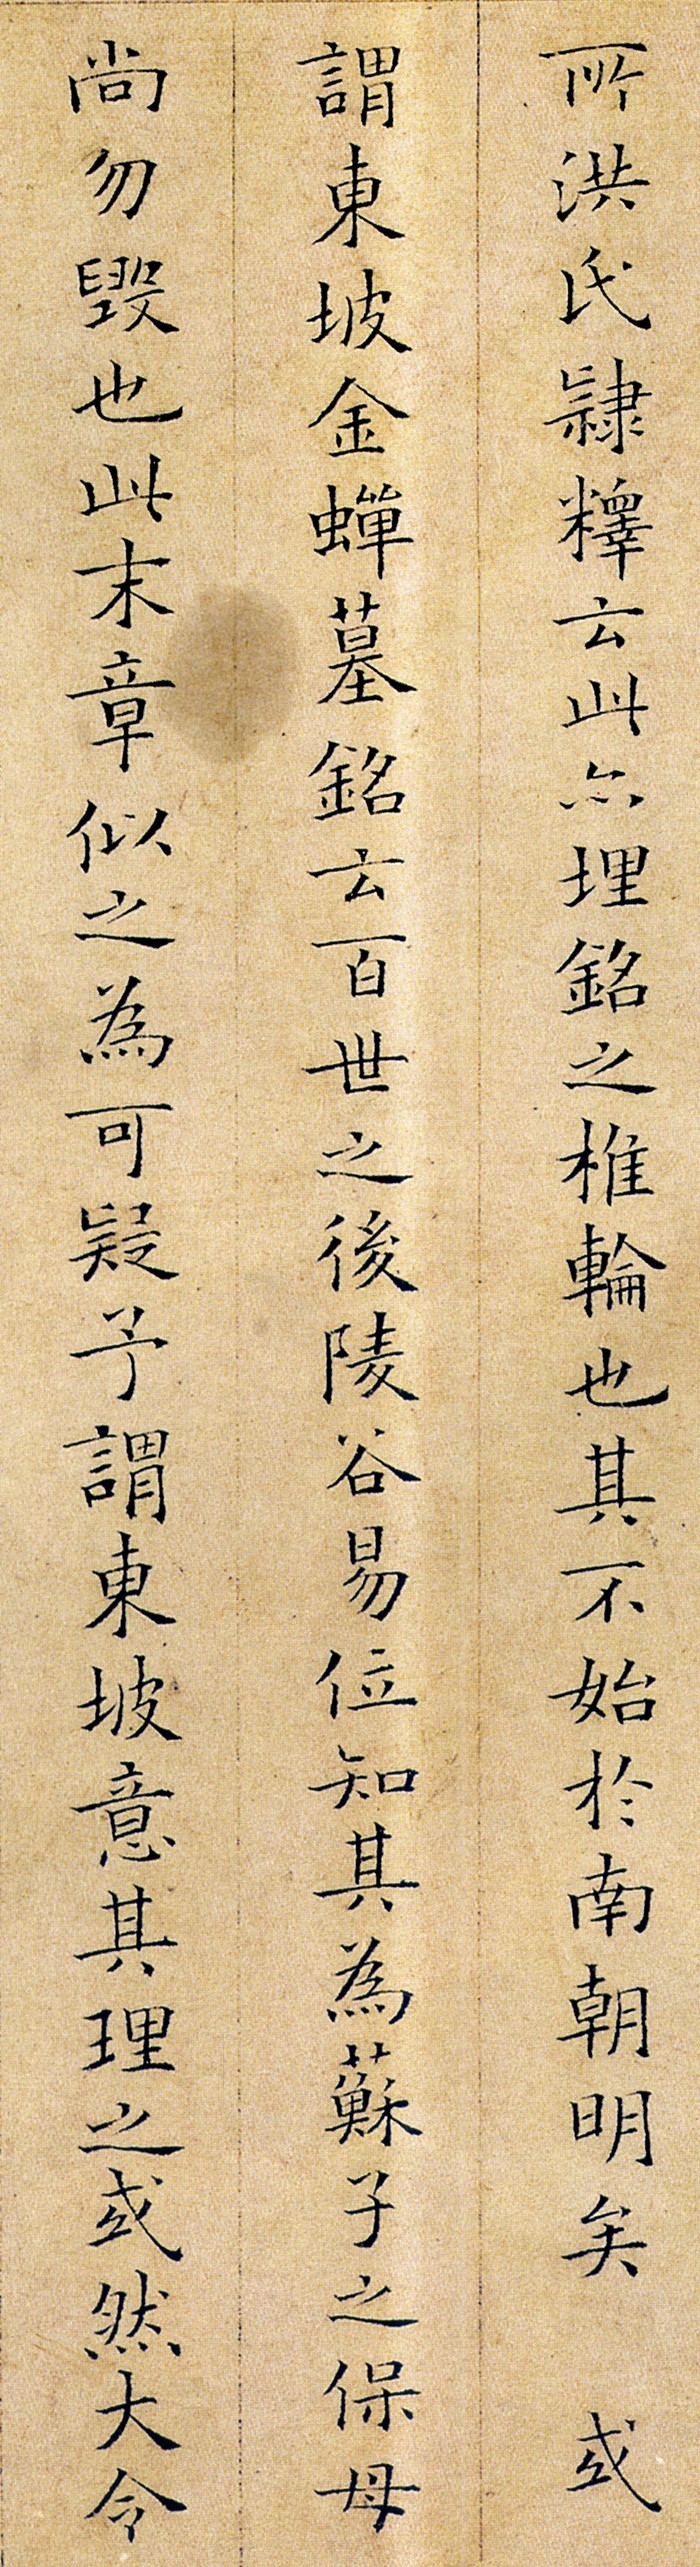 所洪氏隸釋云此亦埋銘之椎輪也其不始於南朝明矣 或
謂東坡金蟬墓銘云百世之後陵谷易位知其為蘇子之保母
尚勿毀也此末章似之為可疑予謂東坡意其理之或然大令